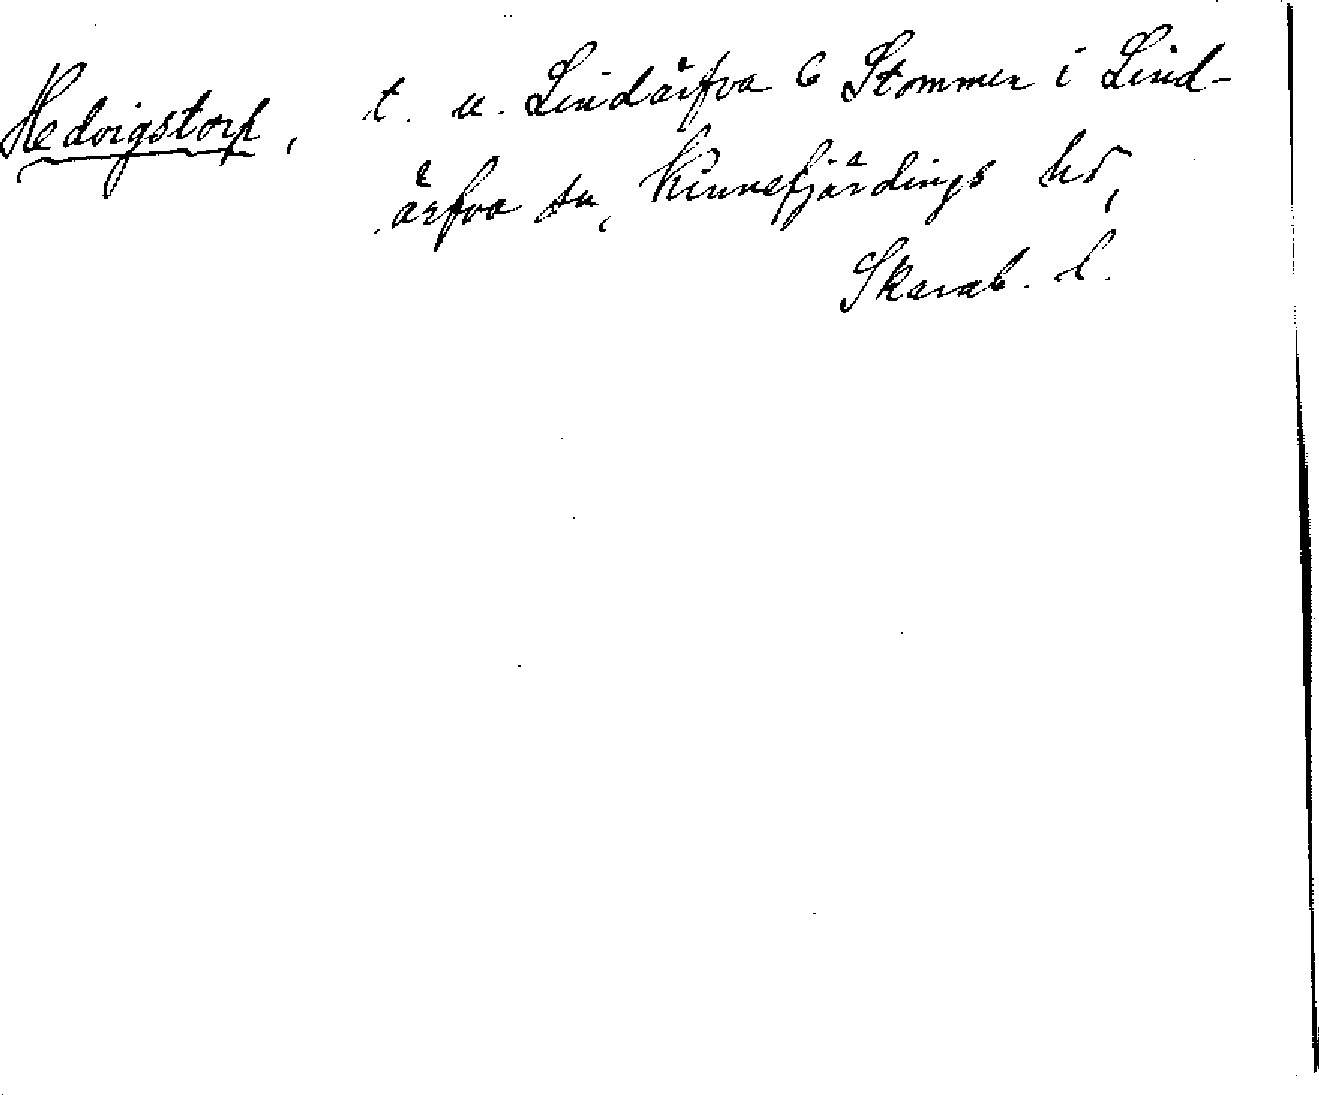 Hedvigstorp, t. u. Lindärfva 6 Stommen i Lind-
ärfva sn, Kinnefjärdings hd,
Skarab. l.